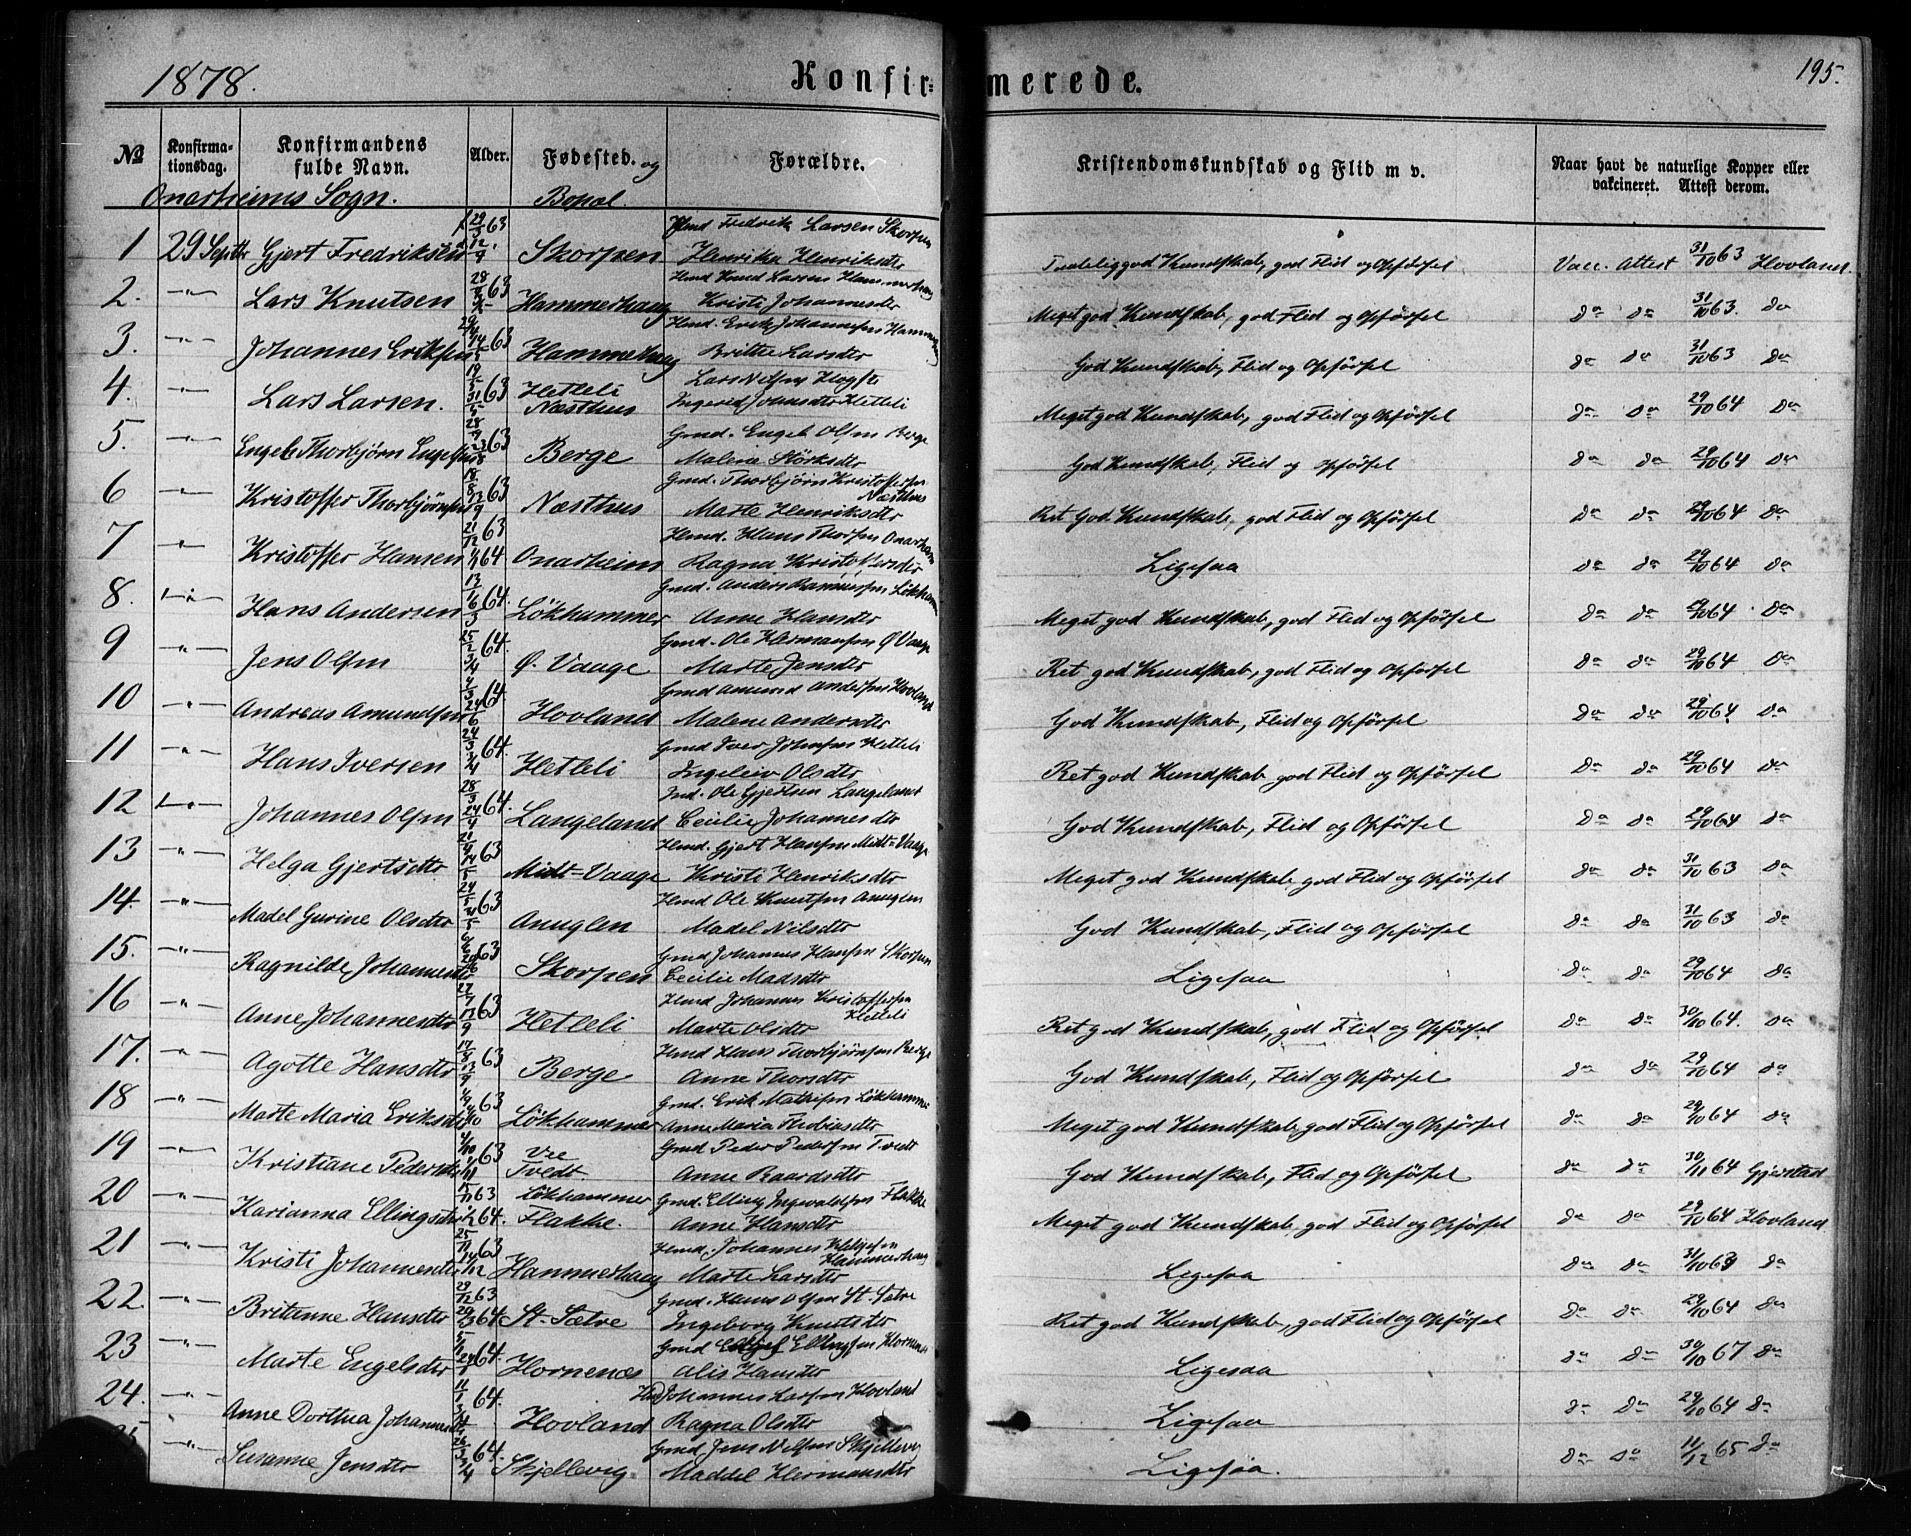 1878.
Konfir=
merede.
195.
No
Konfirma-
tionsdag.
Konfirmandens
fulde Navn.
Alder.
Fødested. og
Bopæl
Forældre.
Kristendomskundskab og Flid m v.
Naar havt de naturlige Kopper eller
vakcineret. Attest derom.
Onarheims Sogn.
1 29 Septbr Gjert Fredriksen 63 Skorpen Hmd Fredrik Larsen Skorpen
Henrika Henriksdtr Vacc. Attest 31/10 63 Hovland.
2. -"- Lars Knutsen 63 Hammerhaug Hmd Knud Larsen Hammerhaug
Kristi Johannesdtr Meget god Kundskab, god Flid og Opførsel do do 31/10 63. do
3. -"- Johannes Eriksen 63 Hammerhaug Hmd. Erik Johannesen
Brithe Larsdtr God Kundskab, Flid og Opførsel do do 31/10 63 do
4. -"- Lars Larsen. 19/5 31/5 63 Hetleli
Næsthus Lars Nilsen
Ingerid Johansdtr Hetleli Meget god Kundskab, god Flid og Opførsel do do 29/10 64 do
5. -"- Engel Thorbjørn 63 Berge Gmd. Engel Olsen Berge
Malene Størksdtr God Kundskab, Flid og Opførsel do do 29/10 64 do
6 -"- Kristoffer Thorbjørnsen 63 Næsthus Gmd. Thorbjørn Kristoffersen
Næsthus
Marte Henriksdtr Ret God Kundskab, god Flid og Opførsel do do 29/10 64 do
7 -"- Kristoffer Hansen 21/12 63 64 Onarheim Hmd. Hans Thorsen Onarheim
Ragna Kristoffersdtr Ligesaa do do 29/10 64 do
8. -"- Hans Andersen 64. Lökhammer Gmd. Anders
Anne Hansdtr Meget god Kundskab, god Flid og Opførsel do do 29/10 64 do
9 -"- Jens Olsen 25/2 3/4 64. Ø. Vaage Gmd. Ole Hermansen Ø Vaage
Marte Jensdtr Ret god Kundskab, god Flid og Opførsel do do 29/10 64 do
10 -"- Andreas Amundsen 64 Hovland Gmd Amund Andersen Hovland
Malene Andersdtr God Kundskab, Flid og Opførsel do do 29/10 64 do
11 -"- Hans Iversen 64. Hetleli Gmd Iver Johnsen Hetleli
Ingeleiv Olsdtr Ret god Kundskab god Flid og Opførsel do do 29/10 64 do
12 -"- Johannes Olsen 28/3 24/4 64. Langeland Ole Gjertsen Langeland
Cecilie Johannesdtr God Kundskab, Flid og Opførsel do do 29/10 64 do
13 -"- Helga Gjertsdtr 63 Midt=Vaage Hmd. Gjert Hansen Midt=Vaage
Kristi Henriksdtr Meget god Kundskab god Flid og Opførsel do do 31/10 63 do
14. -"- Madel Gurine Olsdtr 63 Anuglen Hmd Ole Knutsen Anuglen
Madel Nilsdtr God Kundskab, Flid og Opførsel do do 31/10 63 do
15. -"- Ragnilde Johannesdtr 63 Skorpen Gmd Johannes Hansen Skorpen
Cecilie Madsdtr Ligesaa do do 29/10 64 do
16 -"- Anne Johannesdtr 63 Hetleli Hmd Johannes Kristoffersen
Hetleli
Marte Olsdtr Ret god Kundskab, god Flid og Opførsel do do 30/10 64. do
17. -"- Agotte Hansdtr 17/8 13/9 63 Berge Hmd Hans Thorbjørnsen Berge
Anne Thorsdtr God Kundskab, Flid og Opførsel do do 29/10 64 do
18 -"- Marte Maria Eriksdtr 63 Lökhammer Gmd. Erik Mathisen Lökhammer
Anne Maria Thobiasdtr Meget god Kundskab god Flid og Opførsel do do 29/10 64 do
19 -"- Kristiane Pedersdtr 63 Vre
Tvedt. Gmd Peder Pedersen Tvedt
Anne Baardsdtr God Kundskab, Flid og Opførsel do do 30/11 64 Gjerstad
20 -"- Karianna Ellingsdtr 15/11 63 64. Lökhammer
Flakke. Gmd. Elling Ingvaldsen Flakke
Anne Hansdtr Meget god Kundskab, god Flid og Opførsel do do 29/10 64 Hovland
21 -"- Kristi Johannesdtr 63 Hammerhaug Hmd. Johannes Helgesen
Hammerhaug
Marte Larsdtr Ligesaa do do 31/10 do
22. -"- Britanne Hansdtr 29/12 63 64 St. Sætre Gmd. Hans Olsen St. Sætre
Ingeborg Knutsdtr Ret god Kundskab, god Flid og Opførsel do do 29/10 64 do
23 -"- Marte Engelsdtr 64. Hornenes Gmd Engel Ellingsen Hornenes
Alis Hansdtr Ligesaa do do 30/10 67 do
24. -"- Anne Dorthea Johannesdtr 64. Hovland Johannes Larsen Hovland
Ragna Olsdtr Ligesaa do do 29/10 64 do
-"- Susanne Jensdtr 64. Skjellevig Gmd Jens Nilsen Skjellevig
Maddel Hermansdtr Ligesaa. do do 11/12 65 do